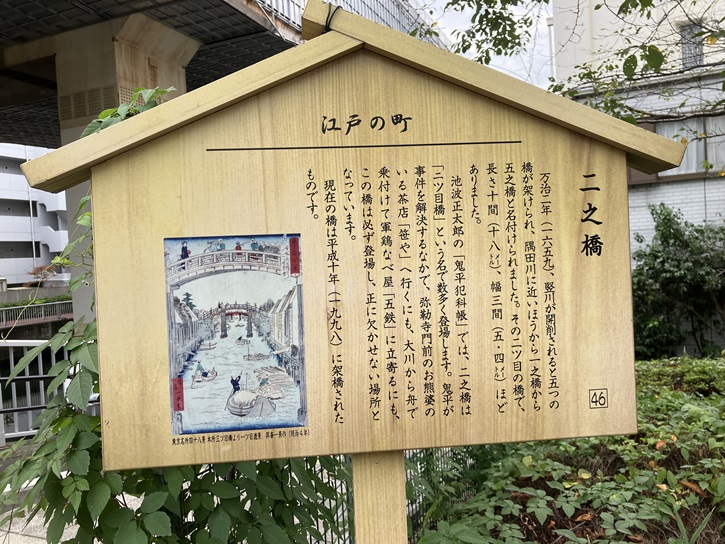 江戸の町
二之橋
万治二年(一六五九)、竪川が開削されると五つの
橋が架けられ、隅田川に近いほうから一之橋から
五之橋と名付けられました。その二ツ目の橋で、
長さ十間(十八メートル)、幅三間(五・四メートル)ほど
ありました。
池波正太郎の「鬼平犯科帳」では、二之橋は
「二ツ目橋」という名で数多く登場します。鬼平が
事件を解決するなかで、弥勒寺門前のお熊婆の
いる茶店「笹や」へ行くにも、大川から舟で
乗付けて軍鶏なべ屋「五鉄」に立寄るにも、
この橋は必ず登場し、正に欠かせない場所と
なっています。
現在の橋は平成十年(一九九八)に架橋された
ものです。
46
東京名所四十八景 本所三ツ目橋より一ツ目遠景 昇斎一景作(明治4年)